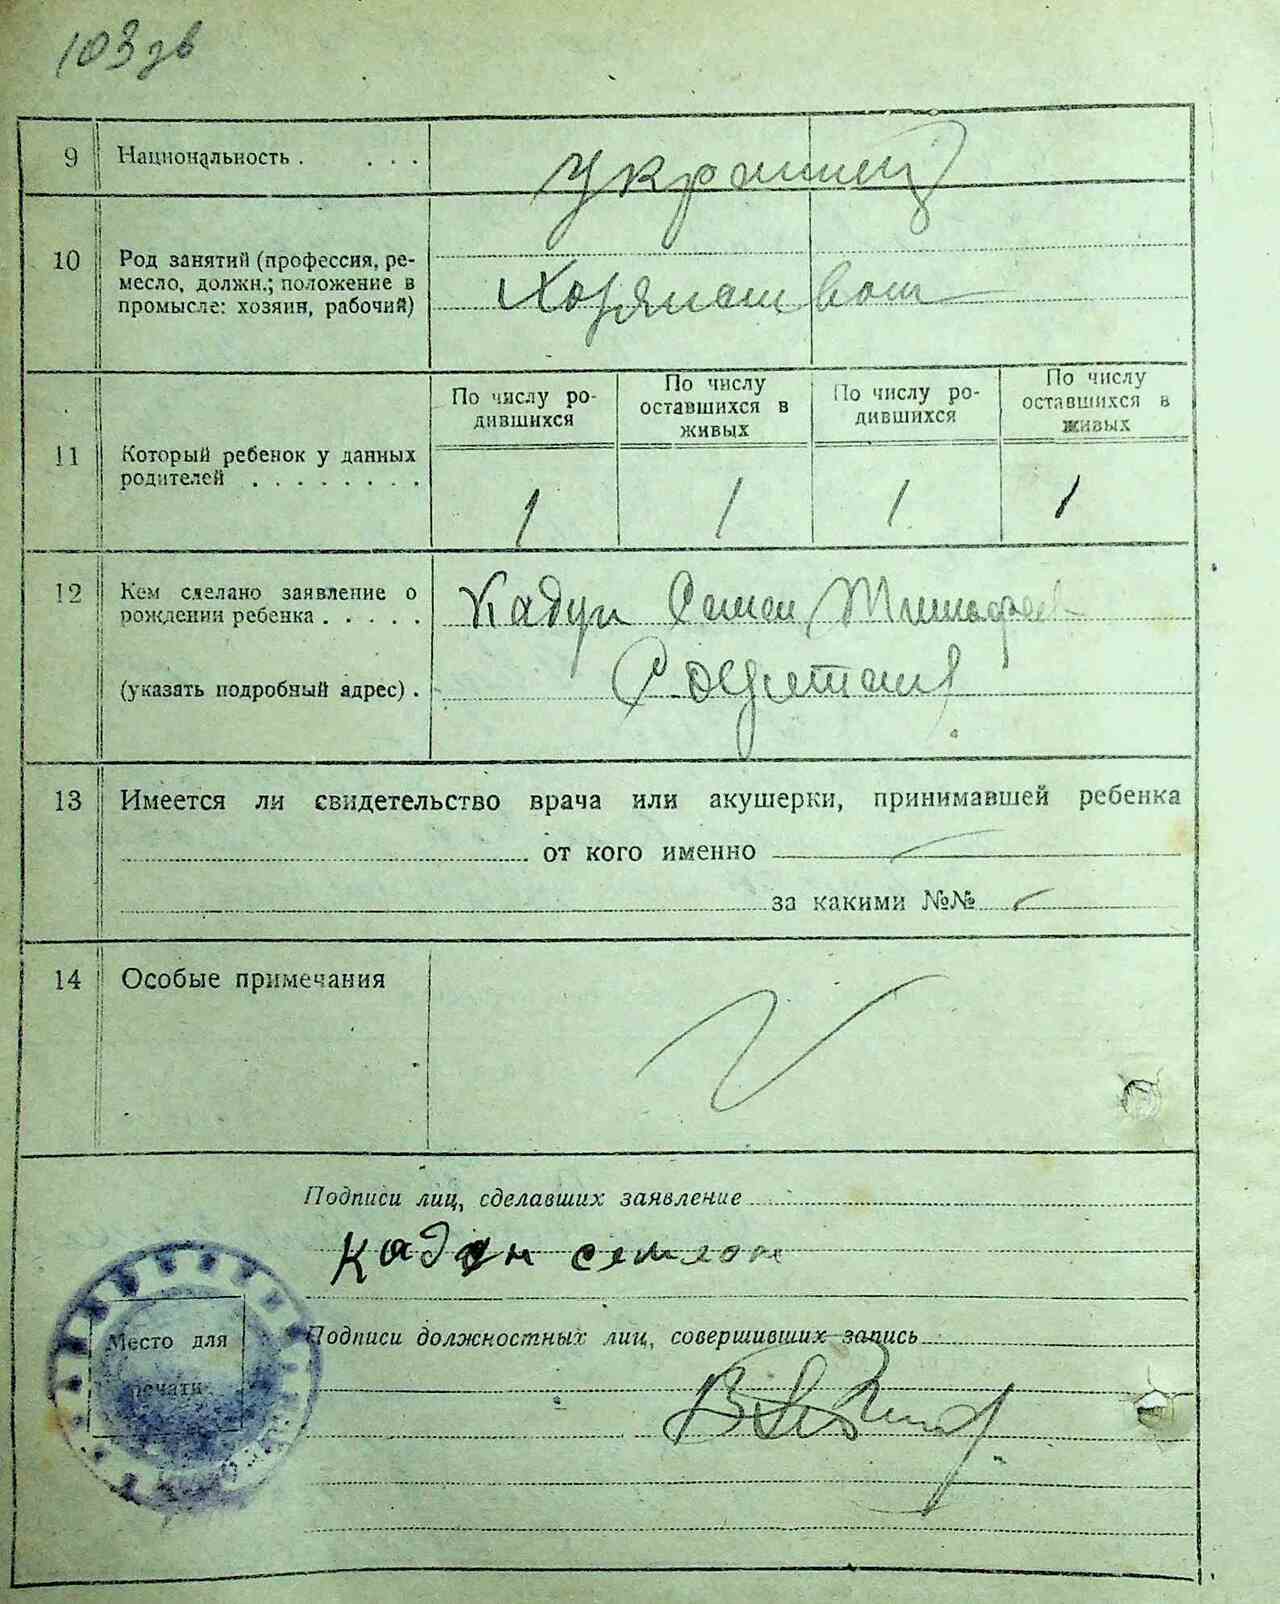 103 зв
9 Национальность . . . . украинец
10 Род занятий (профессия, ре-
месло, должн.; положение в
промысле: хозяин, рабочий)
11 Который ребенок у данных
родителей . . . . . . . .
По числу ро-
дившихся
По числу
оставшихся в
живых
По числу ро-
дившихся
По числу
оставшихся в
живых
1 1 1 1
12 Кем сделано заявление о
рождении ребенка . . . . . Кадун Семен
(указать подробный адрес) .
13 Имеется ли свидетельство врача или акушерки, принимавшей ребенка
от кого именно
за какими №№
14 Особые примечания
Подписи лиц, сделавших заявление
Кадун семеон
Место для
печати
Подписи должностных лиц, совершивших запись